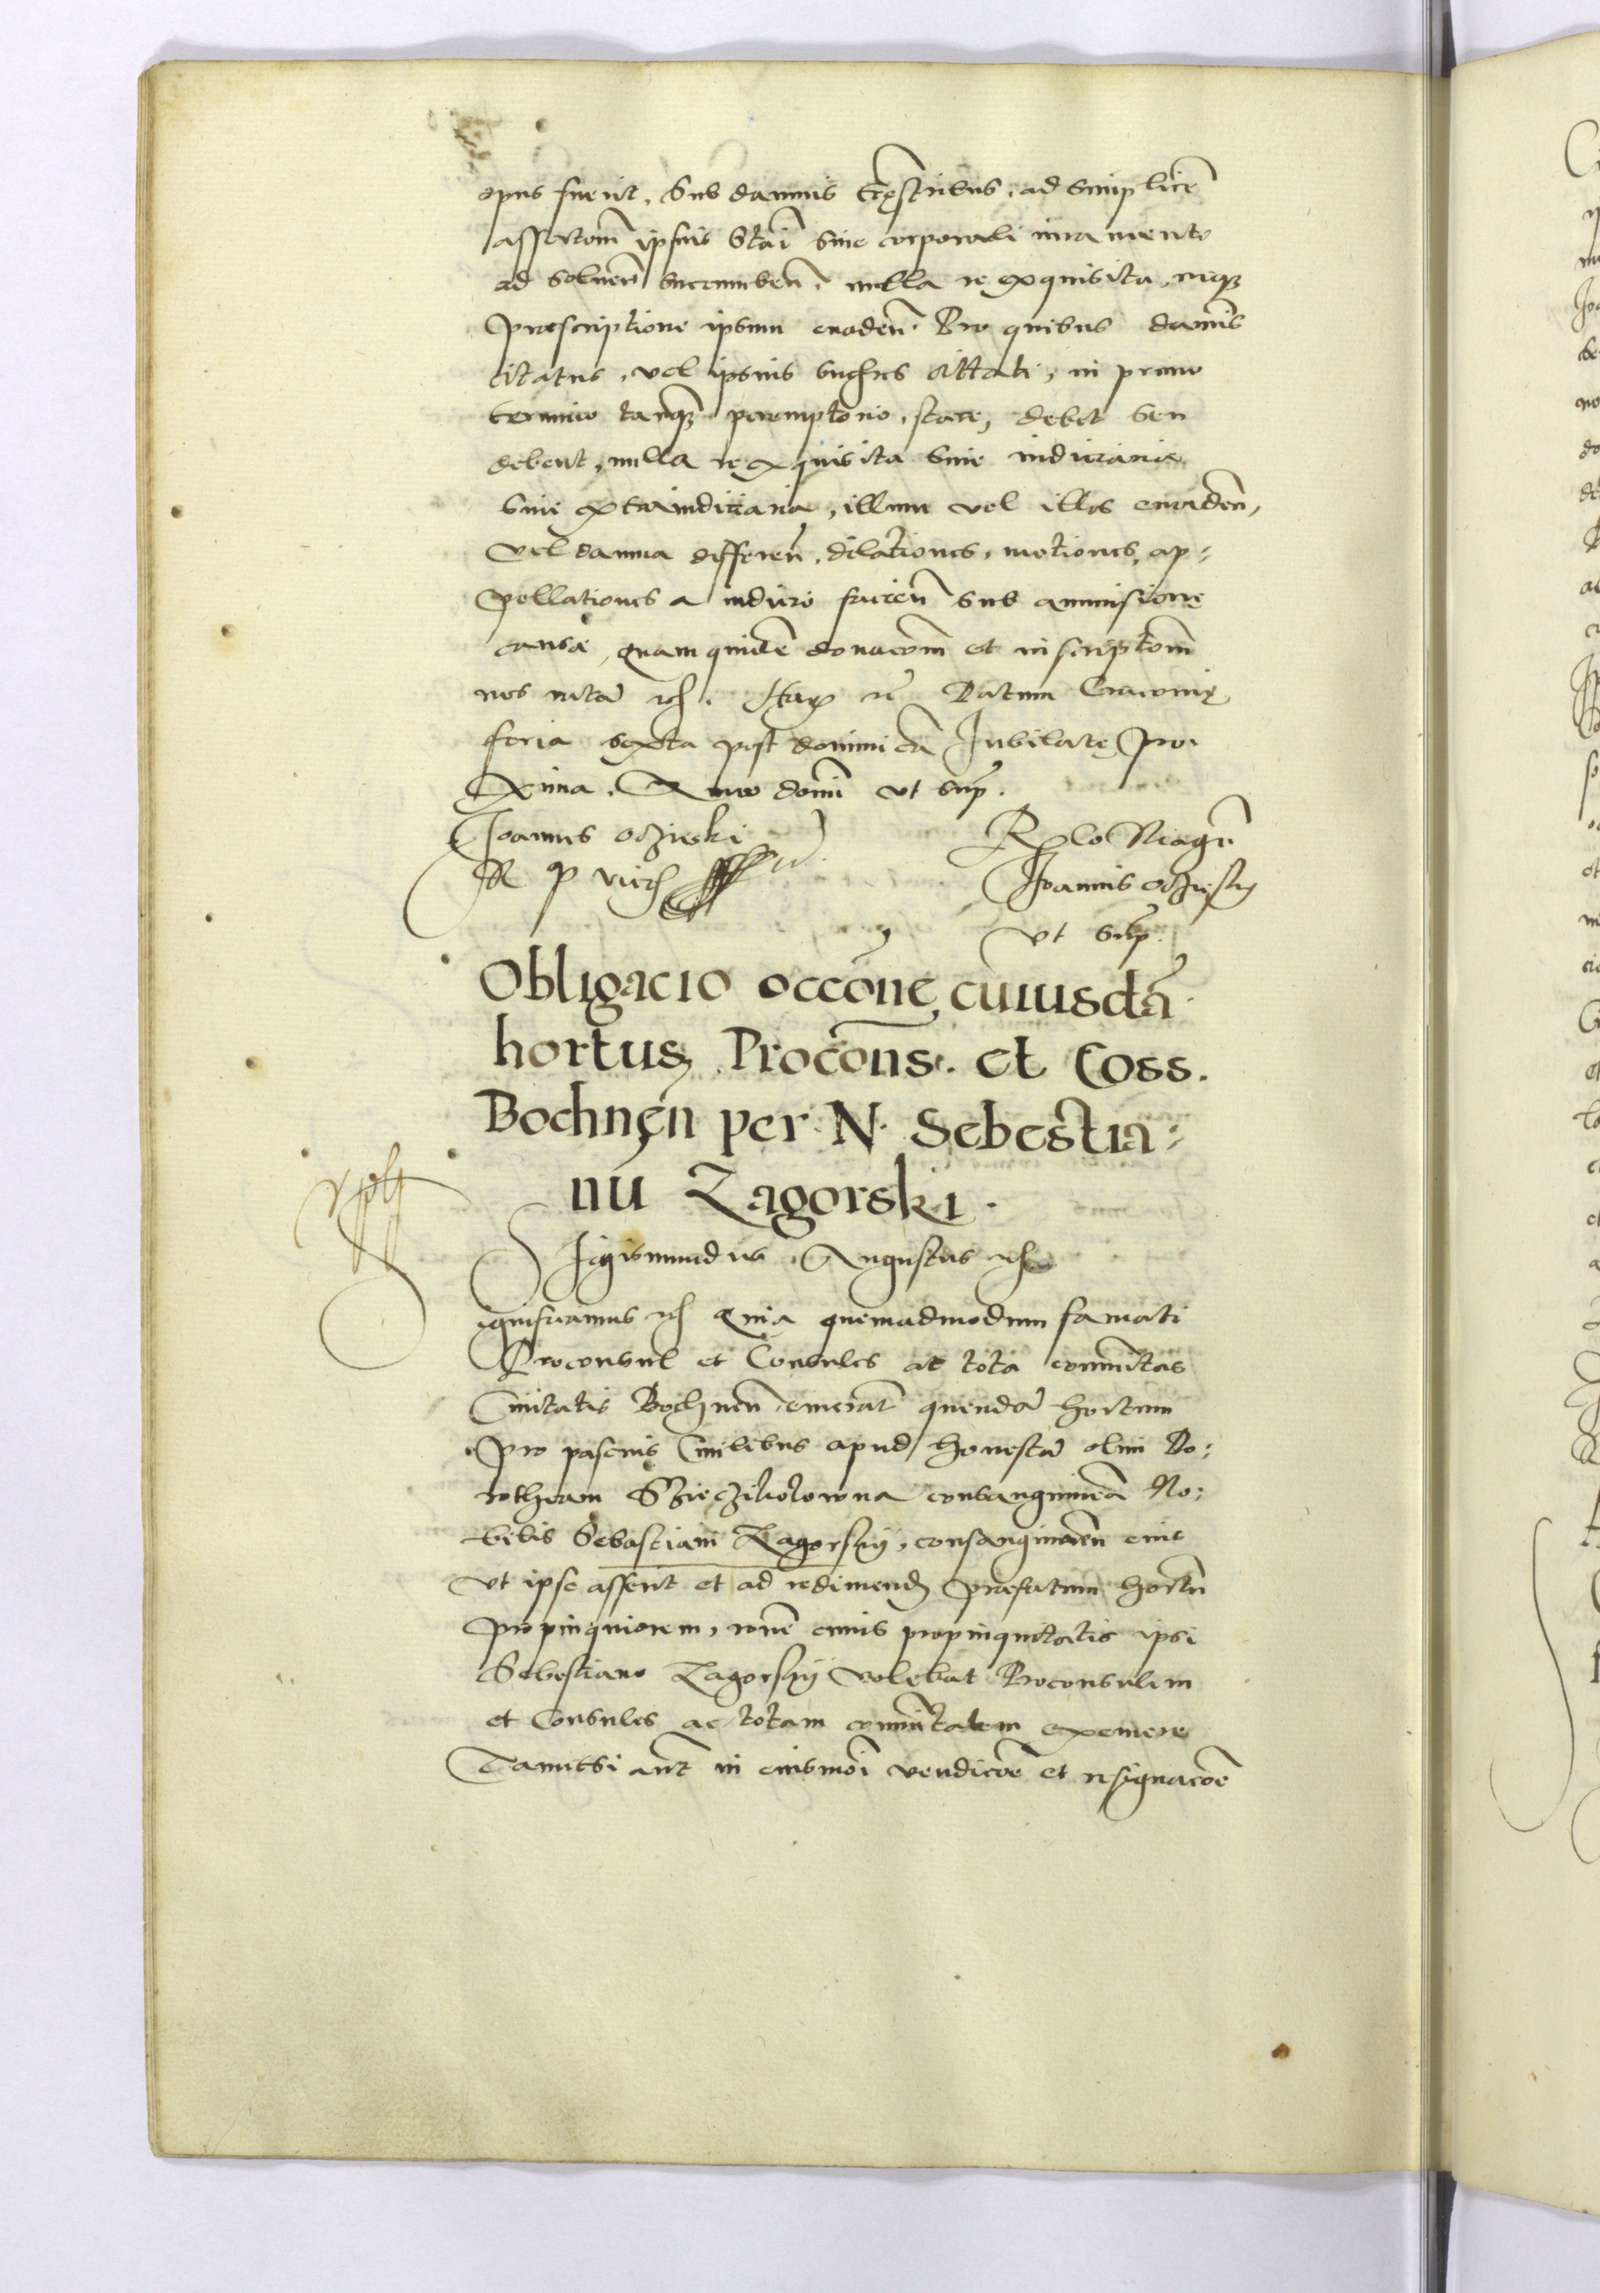 opus fuerit, Sub damnis terrestribus, ad simplicē
assertom̄ ipsius Stāi sine corporali iuramento
ad soluen̄ succumben̄, nulla re exquisita, neq3
praescriptione ipsum euaden̄. Pro quibus damnis
citatus, vel ipsius succes citati, in primo
termino tanq3 peremptorio, stare, debet seu
debent, nulla re exquisita siue iudiciaria
siue extraiudiciaria, illum vel illos euaden̄,
vel damna differen̄, dilationes, motiones, ap:
pellationes a iudicio facien̄ sub ammissione
causae, quam quidē donacom̄ et inscriptom̄
nos ratā
Datum Cracouię
feria sexta post dominicā Jubilate pro
xima, Anno domī ut sup.
Joannes Oczieski
R P vicec
Relo Reagn̄
Joannis Oczieskij
vt sup.
Obligacio occōne cuiusdā
hortus Procōns. et Coss.
Bochnēn per N. Sebestia:
nū Zagorski.
Sigismundus Augustus
ignificamus Quia quemadmodum famati
Proconsul et Consules ac tota com̄nitas
Ciuitatis Bochnen̄ emerāt quendā hortum
pro pascuis Ciuilibus apud honestā olim Do:
rotheam consanguineā No:
bilis Sebastiani Zagorskij, consanguineū eius
vt ipse asserit et ad redimend praefatum hortū
propinquiorem, ronē cuius propinquitatis ipsi
Sebestiano Zagorskij volebat Proconsulem
et Consules ac totam com̄nitatem eximere
Tametsi aūt in eiusmōi vendicōē et resignacōē